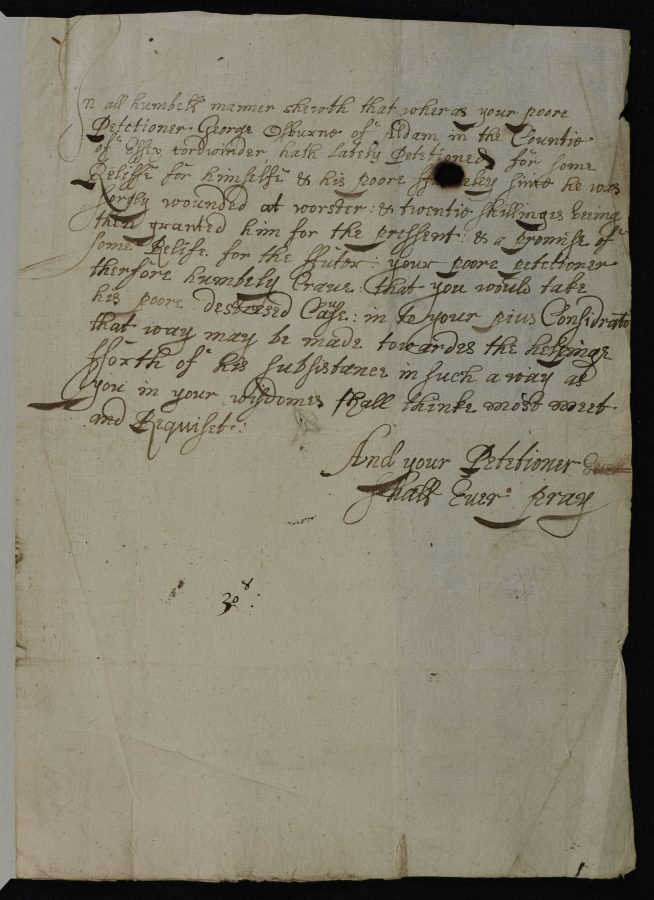 In all humbell manner shewth that wheras your poore
Petetioner George Osburne of Esdam in the Countie
of Essex Cordwinder, hath lately Petetioned for some
Reliffe for himselfe & his poore ff eley since he was
sorely wounded at worster: & twentie shillinges being
then granted him for the pressent: & a promise of
some Relife for the ffutor: your poore petetioner
therfore humbely Craue: that you would take
his poore destresed Cause: in to your pius Considrato
that way may be made towardes the helpinge
fforth of his subsistance in such a way as
you in your wisdomes shall thinke most meet
and Requiset:
And your Petetioner Euer
shall Ever pray
30s: